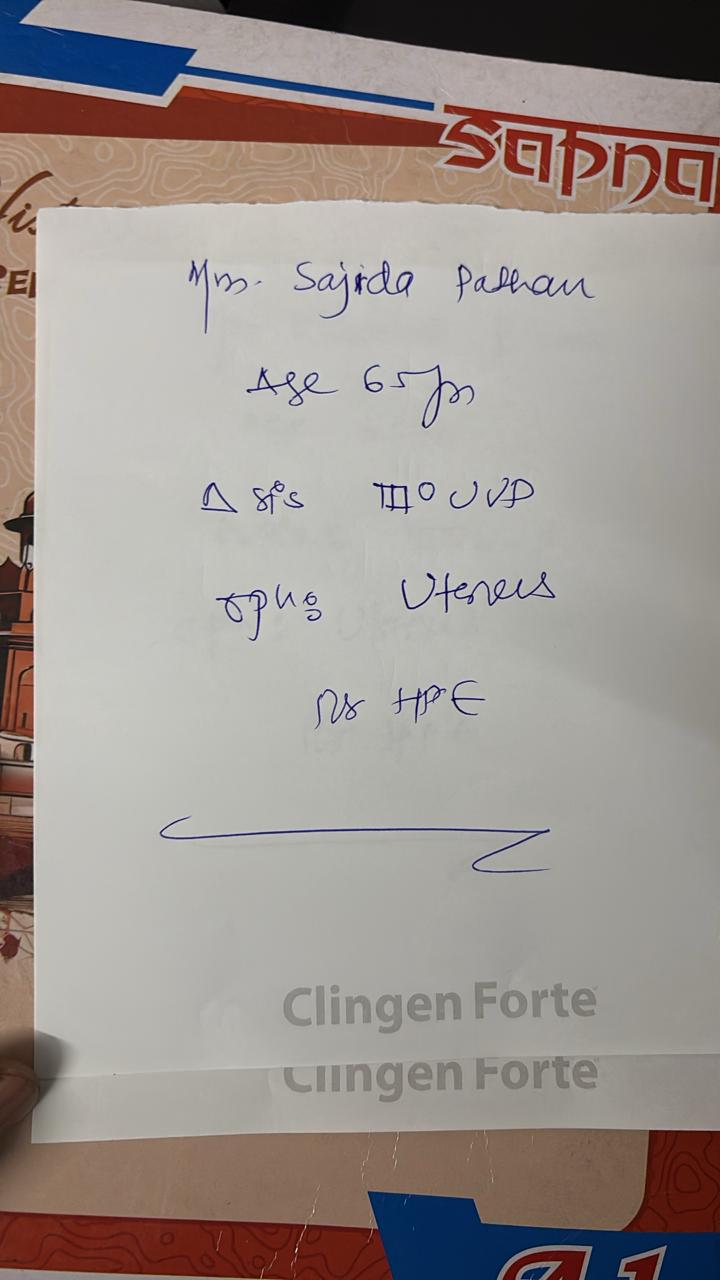 Sapna
Mrs. Sajida Pathan
Age 65 yrs
Δ sis III° UVP
Uterus
for HPE
Clingen Forte
Clingen Forte